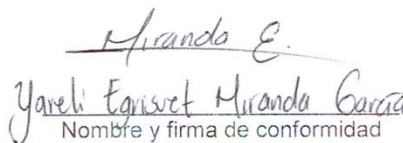 Miranda E.
Yareli Egrisvet Miranda García
Nombre y firma de conformidad